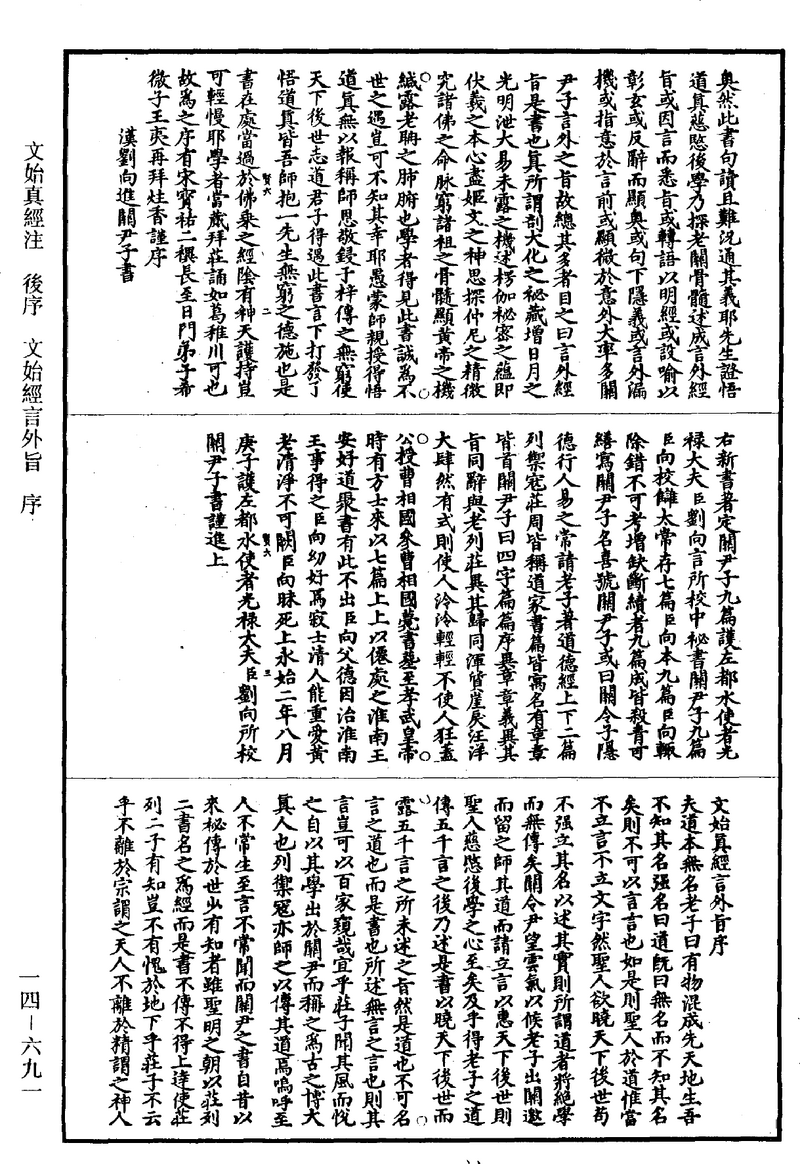 奥然此書句讀且難況通其義耶先生證悟
道真慈愍後學乃探老關骨髓述成言外經
旨或因言而悉旨或轉語以明經或設喻以
彰玄或反辭而顯奧或句下隱義或言外漏
機或指意於言前或顯微於意外大率多關
尹子言外之旨故總其多者目之曰言外經
旨是書也真所謂剖大化之秘藏增日月之
光明泄大易未露之機述楞伽秘密之蘊即
伏羲之本心盡姬文之神思探仲尼之精微
究諸佛之命脉窮諸祖之骨髓顯黃帝之機
緘露老聃之肺腑也學者得見此書誠為不
世之遇豈可不知其幸耶愚蒙師親授得悟
道真無以報稱師恩敬鋟于梓傳之無窮使
天下後世志道君子得遇此書言下打發了
悟道真皆吾師抱一先生無窮之德施也是
書在處當過於佛乘之經陰有神天護持豈
可輕慢耶學者當歲拜莊誦如葛稚川可也
故為之序有宋寶祐二禩長至日門弟子希
微子王夷再拜炷香謹序
漢劉向進關尹子書
右新書著定關尹子九篇護左都水使者光
祿大夫臣劉向言所校中祕書關尹子九篇
臣向校讎太常存七篇臣向本九篇臣向輙
除錯不可考增缺斷續者九篇成皆殺青可
繕寫關尹子名喜號關尹子或曰關令子隱
德行人易之常請老子著道德經上下二篇
列禦寇莊周皆稱道家書篇皆寓名有章章
皆首關尹子曰四字篇篇序異章章義異其
旨同辭與老列莊異其歸同渾質崖戾汪洋
大肆然有式則使人泠泠輕輕不使人狂蓋
公授曹相國參曹相國薨書葬至孝武皇帝
時有方士來以七篇上上以僊處之淮南王
安好道聚書有此不出臣向父德因治淮南
王事得之臣向幼好焉寂士清人能重愛黃
老清淨不可闕臣向昧死上永始二年八月
庚子護左都水使者光祿大夫臣劉向所校
關尹子書謹進上
文始真經言外旨序
夫道本無名老子曰有物混成先天地生吾
不知其名強名曰道既曰無名而不知其名
矣則不可以言言也如是則聖人於道惟當
不立言不立文字然聖人欲曉天下後世苟
不强立其名以述其實則所謂道者將絕學
而無傳矣關令尹望雲氣以候老子出關邀
而留之師其道而請立言以惠天下後世則
聖人慈愍後學之心至矣及乎得老子之道
傳五千言之後乃述是書以曉天下後世而
露五千言之所未述之旨然是道也不可名
言之道也而是書也所述無言之言也則其
言豈可以百家窺哉宜乎莊子聞其風而悅
之自以其學出於關尹而稱之為古之博大
真人也列禦冦亦師之以傳其道焉嗚呼至
人不常生至言不常聞而關尹之書自昔以
來祕傳於世少有知者雖聖明之朝以莊列
二書名之為經而是書不傳不得上達使莊
列二子有知豈不有愧於地下乎莊子不云
乎不離於宗謂之天人不離於精謂之神人
文始真經注　後序　文始經言外旨　序
一四－六九一